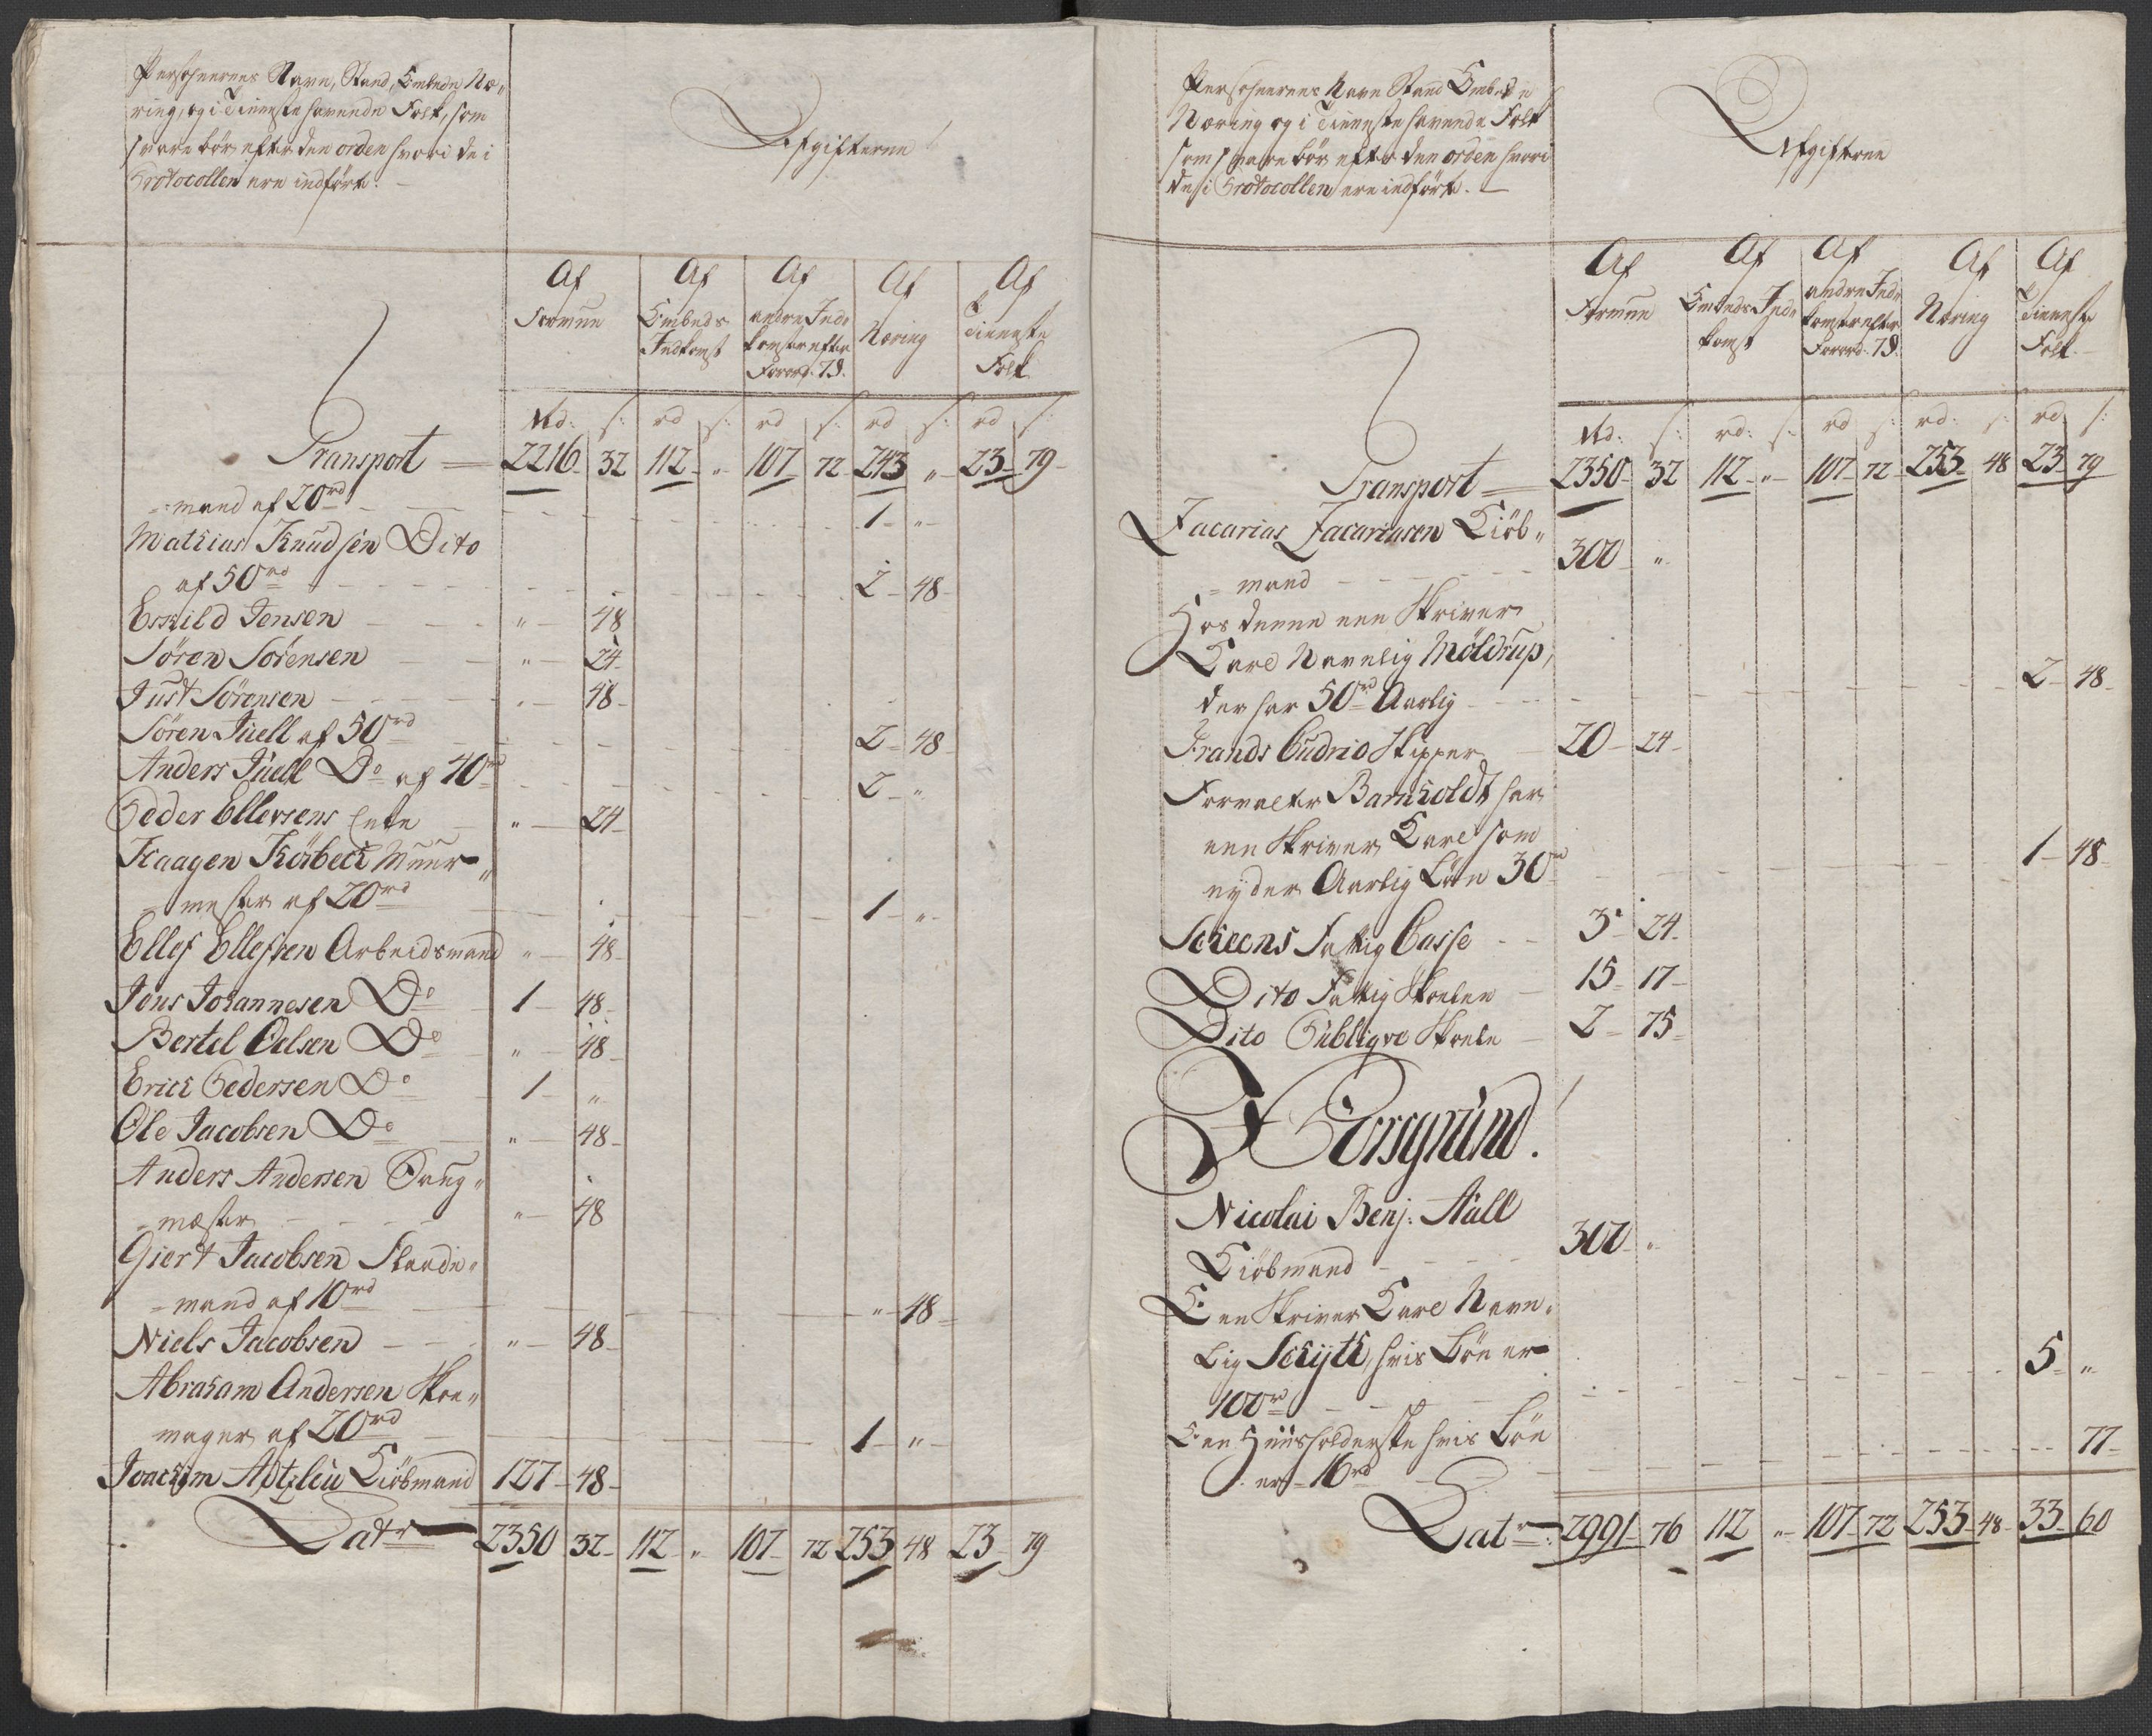 Persohnernes Navn, Stand, Embede Næ-
ring, og i Tieneste havende Folk, som
svare bör efter den orden hvori de i
Protocollen ere indført.
Afgifterne
Af Formue
Af Embeds Indkomst
Af andre Ind- komster efter Forord. 78.
Af Næring
Af Tieneste Folk
Rd: s: rd s: rd s: rd s: rd s:
Transport 2216 32 112 " 107 72 243 " 23 79
mand af 20rd 1 "
Mathias Knudsen Dito
af 50rd 2 48
Eskild Jensen " 48
Sören Sörensen " 24
Just Sörensen " 48
Sören Juell af 50rd 2 48
Anders Juell Do af 40rd 2 "
Peder Ellevsens Enke " 24
Haagen Kosbech Muur-
mester af 20rd 1 "
Ellef Ellefsen Arbeidsmand " 48
Jens Johannesen Do 1 48
Bertel Oelsen Do " 48
Erich Pedersen Do 1 "
Ole Jacobsen Do " 48
Anders Andersen
mester " 48
Giert Jacobsen
mand af 10rd " 48
Niels Jacobsen " 48
Abraham Andersen Skoe-
mager af 20rd 1 "
Joachim Kiöbmand 127 48
Latr 2350 32 112 " 107 72 253 48 23 79
Persohnernes Navn Stand Embede
Næring og i Tieneste havende Folk
som svare bör efter den orden hvori
de i Protocollen ere indført.
Afgifterne
Af Formue
Af Embeds Ind- komst
Af andre Ind- komster efter Forord. 78.
Af Næring
Af Tieneste Folk
Rd: s: rd: s: rd s: rd: s: rd s:
Transport 2350 32 112 " 107 72 253 48 23 79
Zacarias Zacariasen Kiöb-
mand 300 "
Hos denne een Skriver
Karl Navnlig Möldrup,
der har 50rd Aarlig 2 48
Frands Cudrio Skipper 20 24
Forvalter Barnholdt har
een Skriver Karl som
nyder Aarlig Løn 30rd 1 48
Scheens Fattig Casse 3 24
Dito Fattig Skoelen 15 17
Dito Publiqve Skoele 2 75
Porsgrund.
Nicolai Benj: Aall
Kiöbmand 300 "
Een Skriver Karl Navn-
lig Schyth, hvis Løn er
100rd 5 "
Een Huusholderske hvis Løn
er 16rd 77
Latr 2991 76 112 " 107 72 253 48 33 60